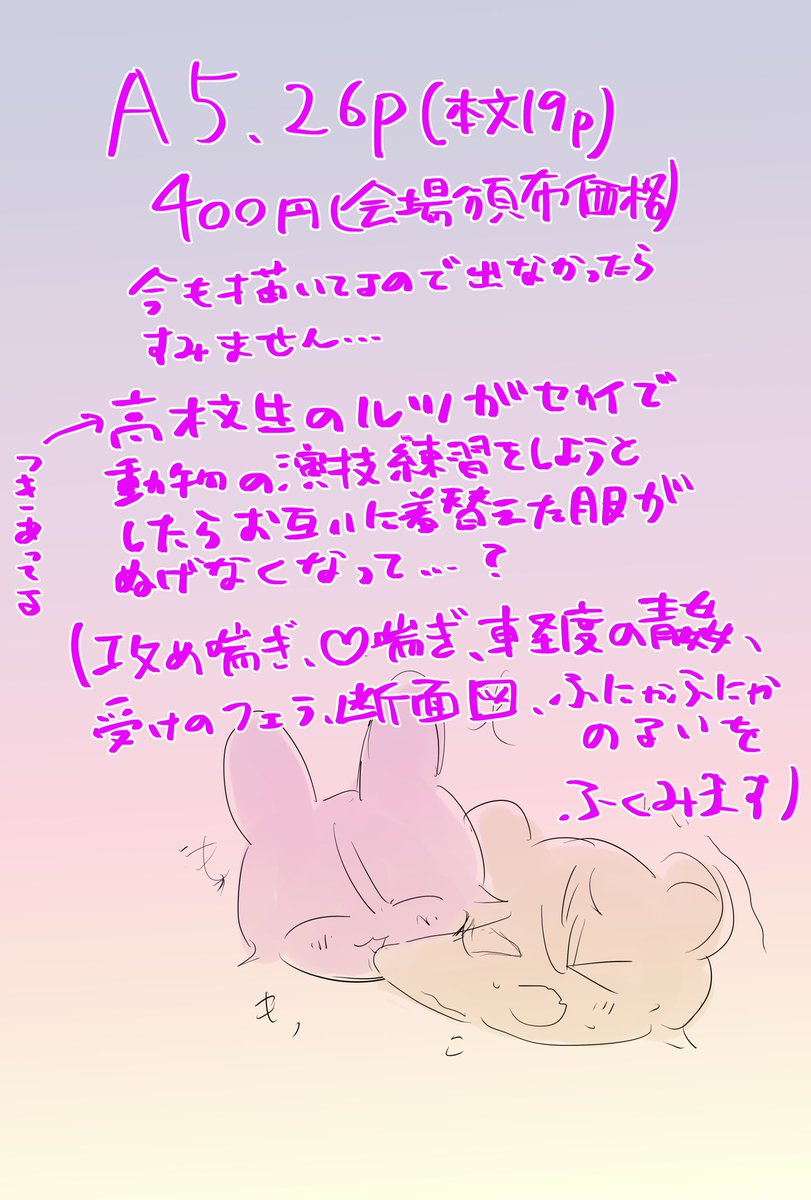 A5、26p(本文19p)
400円(会場頒布価格)
今も描いてるので出なかったら
すみません…
→高校生のルツがセカイで
つきあってる
動物の演技練習をしようと
したらお互いに着替えた服が
ぬげなくなって…?
(攻め喘ぎ、♡喘ぎ、軽度の青姦、
受けのフェラ、断面図、ふにゃふにゃ
のるいを
ふくみます)
も
も、
こ